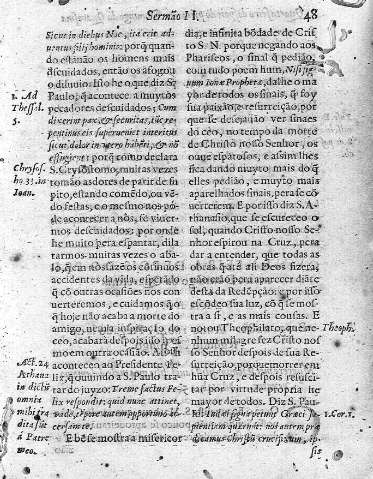 Sermão II.
48
Sicut in diebus Noe, ita erit ad-
uentus filij hominis: porq̃ quan-
do estauão os homens mais
descuidados, então os afogou
o diluuio. Isto he o que diz S.
Paulo, q̃ acontece a muytos
peccadores descuidados; Cum
dixerint pax, & securitas, tũc re-
pentinus eis superueniet interitus
sicut dolor in vtero habẽti, & nõ
effugient: porq̃ como declara
S. Chrysostomo, muitas vezes
tomão as dores de parir de su-
pito, estando comẽdo, ou vẽ-
do festas, e o mesmo nos pó-
de acontecer a nós, se viuer-
mos descuidados: por onde
he muito pera espantar, dila-
tarmos muitas vezes o aba-
lo, q̃ em nós fazẽ os cõtinuos
accidentes da vida, esperãdo
q̃ cõ outras ocasiões nos con-
uerteremos, e cuidamos q̃
que hoje não acaba a morte do
amigo, nẽ a inspiração do
ceo, acabará depois isso mes-
mo em outra ocasião. Assi
aconteceo ao Presidente Fe-
lix, q̃ ouuindo a S. Paulo tra-
tar do juyzo: Tremefactus Fe-
lix respondit: quid nunc attinet,
vade, tempore autem opportuno
accersam te.
E bẽ se mostra a misericor
1. Ad
Thessal.
5.
Chrysos.
ho. 33. in
Ioan.
Act. 24
Athana
in dictũ
omnia
mihi tra
dita sũt
à Patre
meo.
dia, e infinita bõdade de Cris
to S. N. porque negando aos
Phariseos, o sinal q̃ pedião,
com tudo poem hum, Nisi sig-
num Ionæ Prophetæ, dalhe o ma
yor de todos os sinais, q̃ foy
sua paixão, e resurreição, por
que se desejauão ver sinaes
do ceo, no tempo da morte
de Christo nosso Senhor, os
ouue espatosos, e assim lhes
fica dando muyto mais do q̃
elles pedião, e muyto mais
aparelhados sinais, pera se cõ
uerterem. E por isso diz S. A-
thanasio, que se escureceo o
sol, quando Christo nosso Se-
nhor espirou na Cruz, pera
dar a entender, que todas as
obras q̃ atè alli Deos fizera,
não erão pera aparecer diãte
desta da Redẽpção; e por isso
escõdeo sua luz, cõ q̃ se mos-
tra a si, e as mais cousas. E
notou Theophilato, que ne-
nhum milagre fez Christo nos
so Senhor despois de sua Re-
surreição, porque morrer em
hũa Cruz, e despois resusci-
tar por virtude propria he
mayor de todos. Diz S. Pau-
lo: Iudæi signa petunt, Græci sa-
pientiam quærunt: nos autem præ
dicamus Christũ crucifixum, ip-
sis
Theoph.
1. Cor. 1.